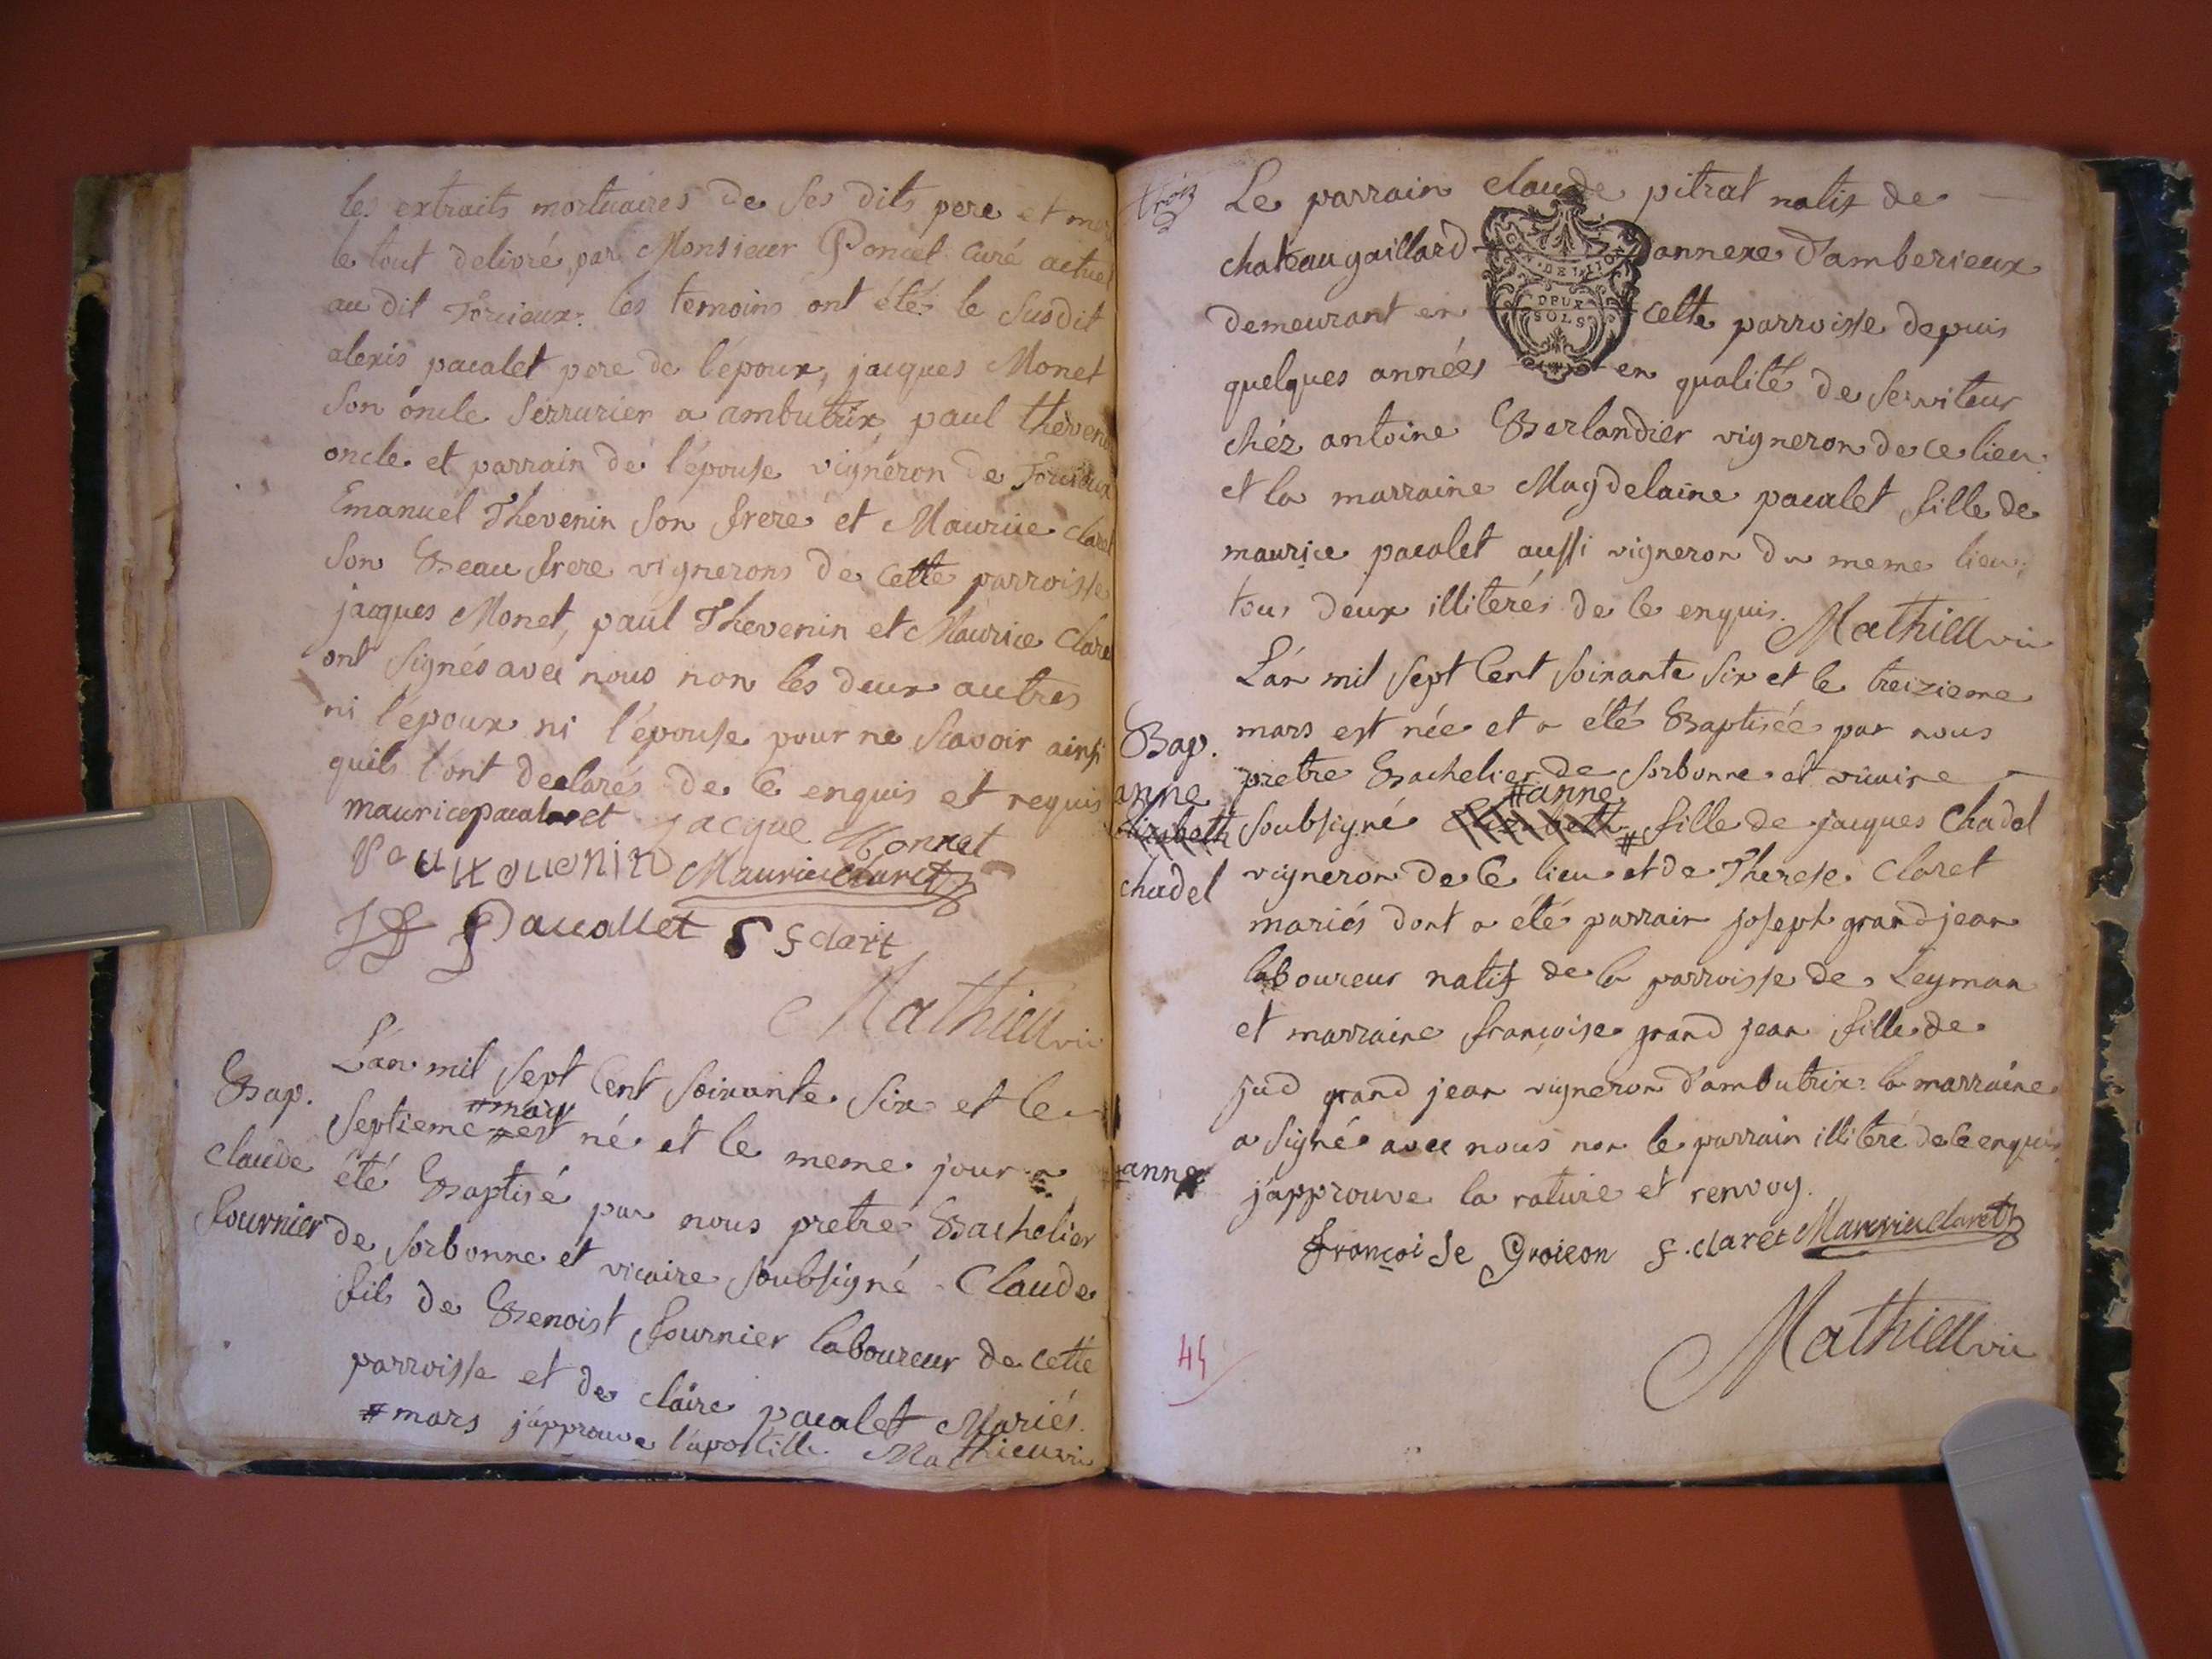 les extraits mortuaires de ses dits pere et mere
le tout delivré par Monsieur Poncet curé actuel
au dit Torcieux: les temoins ont étés le susdit
alexis pacalet pere de l'époux, jacques Monet
son oncle serrurier a ambutrix, paul thevenin
oncle et parrain de l'épouse vigneron de Torcieux
Emanuel Thevenin son frere et Maurice claret
son Beau frere vignerons de cette parroisse
jacques Monet, paul Thevenin et Maurice Claret
ont signés avec nous non les deux autres
ni l'époux ni l'épouse pour ne scavoir ainsi
quils l'ont declarés de ce enquis et requis
maurice jacque Monnet
Maurice Claret
Pacallet
Mathieu vic
L'an mil sept cent soixante six et le
#mars
Bap. septieme # est né et le meme jour a
claude été Baptisé par nous pretre Bachelier
fournier de sorbonne et vicaire soubsigné Claude
fils de Benoist fournier laboureur de cette
parroisse et de claire pacalet Mariés.
#mars j'approuve l'apostille Mathieu vic
trois Le parrain claude pitrat natif de
chateaugaillard annexe d'amberieux
DEUX SOLS
demeurant en cette parroisse depuis
quelques années en qualité de serviteur
chéz antoine Berlandier vigneron de ce lieu
et la marraine Magdelaine pacalet fille de
maurice pacalet aussi vigneron du meme lieu;
tous deux illiterés de ce enquis. Mathieu vic
L'an mil sept cent soixante six et le treizieme
Bap. mars est née et a été Baptisée par nous
anne pretre Bachelier de sorbonne et vicaire
#anne
elizabeth soubsigné Elizabeth # fille de jacques Chadel
chadel vigneron de ce lieu et de Therese Claret
mariés dont a été parrain joseph grandjean
laboureur natif de la parroisse de Leyman
et marraine francoise grand jean fille de
jud grand jean vigneron d'ambutrix: la marraine
a signé avec nous non le parrain illiteré de ce enquis
#anne j'approuve la rature et renvoy.
françoise f. claret Maurice claret
Mathieu vic